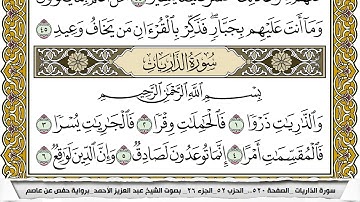 وَمَآ أَنتَ عَلَيْهِم بِجَبَّارٍ ۖ فَذَكِّرْ بِٱلْقُرْءَانِ مَن يَخَافُ وَعِيدِ ٤٥
سُورَةُ الذَّارِيَاتِ
بِسْمِ ٱللَّهِ ٱلرَّحْمَٰنِ ٱلرَّحِيمِ
وَٱلذَّٰرِيَٰتِ ذَرْوًا ١ فَٱلْحَٰمِلَٰتِ وِقْرًا ٢ فَٱلْجَٰرِيَٰتِ يُسْرًا ٣
فَٱلْمُقَسِّمَٰتِ أَمْرًا ٤ إِنَّمَا تُوعَدُونَ لَصَادِقٌ ٥ وَإِنَّ ٱلدِّينَ لَوَٰقِعٌ ٦
سورة الذاريات _الصفحة ٥٢٠_ الحزب ٥٢_الجزء ٢٦_ بصوت الشيخ عبد العزيز الأحمد_برواية حفص عن عاصم